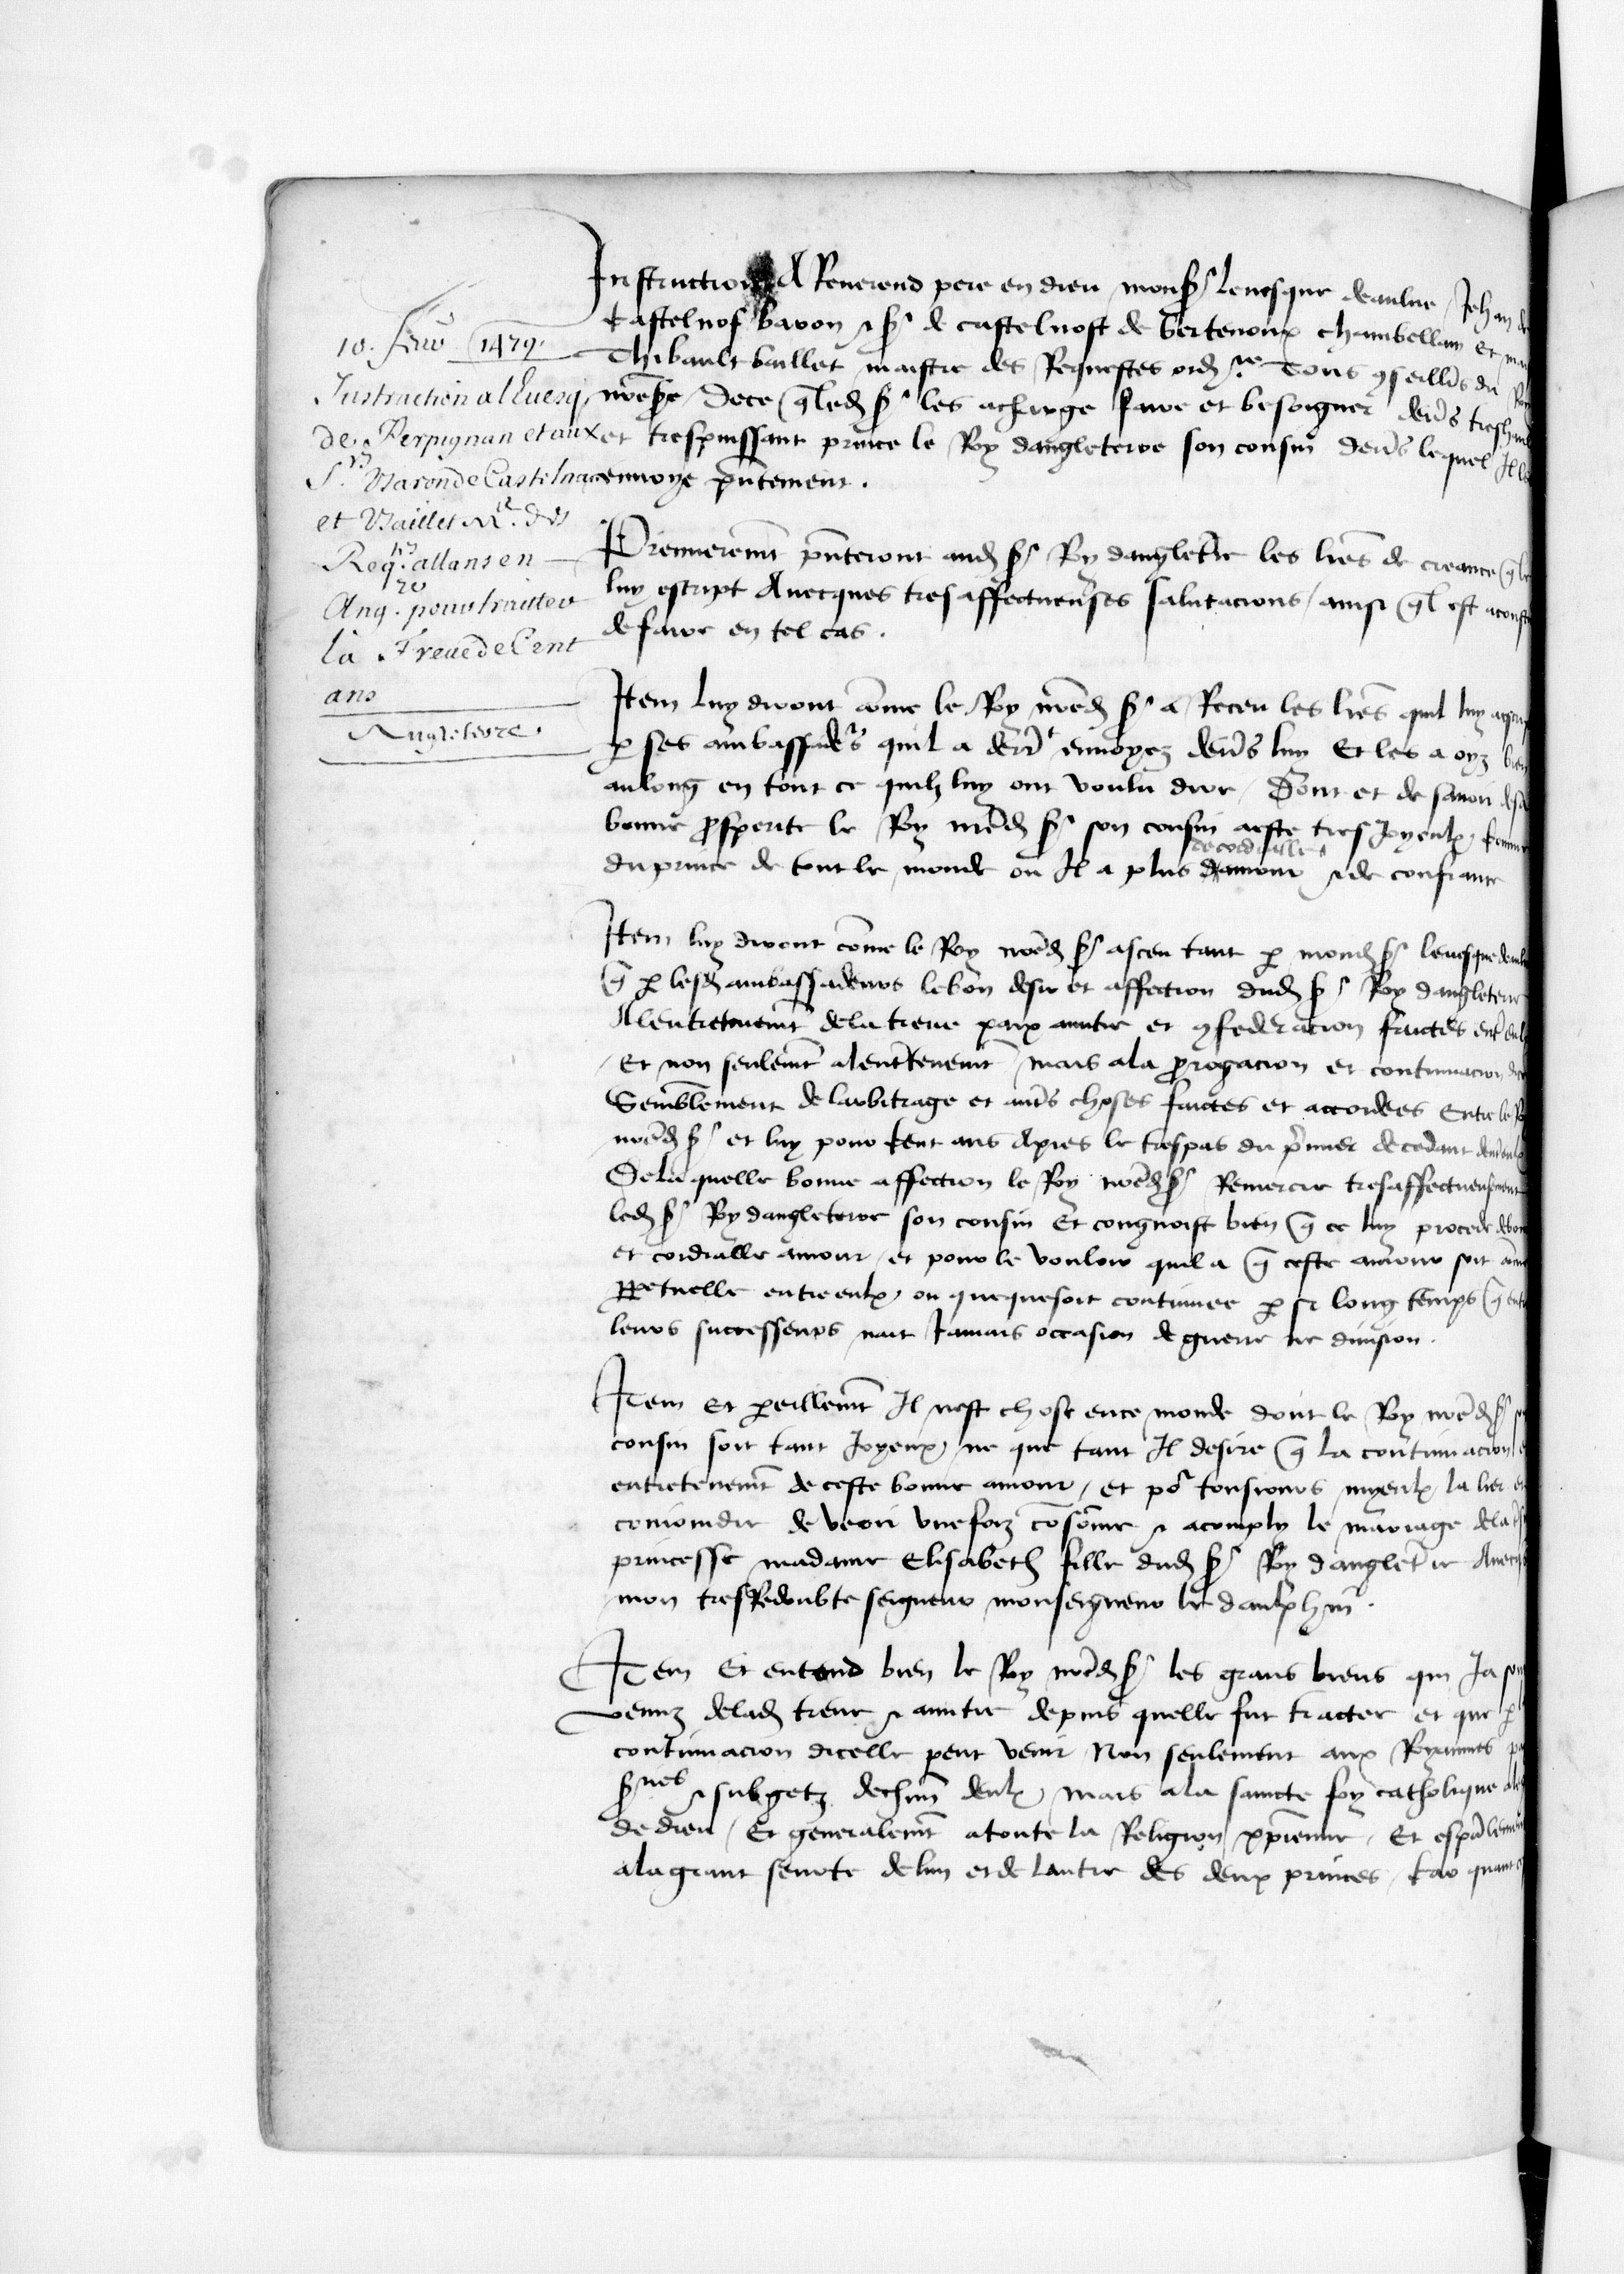 10. feuv 1479.
Instruction a l'Euesq,
de Perpignan et aux
Srs Baron de Castelnau
et Baillet Mre. des
Reqtes. allans en
Angre. pour traitter
la Treue de Cent
ans
Angleterre.
Instruction A Reuerend pere en dieu monsr leuesque deaulne Jehan de
Castelnof baron & sr de castelnoft de bertenoux chambellan et
Thibault baillet maistre des Requestes ordre Tous 9seillrs du Roy
nre sire Dece ql led sr les acharge faire et besoigner deurs treshault
et trespuissant prince le Roy dangleterre son cousin deurs lequel Il
enuoye pntement.
Premieremt pnteront aud sr Roy dangletre les lres de creance
luy escript Auecques tresaffectueuses salutacions / ainsi ql est
de faire en tel cas.
Item luy diront cõme le Roy nred sr a Receu les lres quil luy
p ses ambassadrs quil a enuoyez deurs luy Et les a oyz bien
aulong en tout ce quilz luy ont voulu dire / Dont et de sauoir
bonne prosperite le Roy nred sr son cousin aeste tres Joyeulx / comme
du prince de tout le monde ou Il a plus damour & de confiance
Item luy diront cõme le Roy nred sr asceu tant p mond sr leuesque
q p lesd ambassadeurs lebon desir et affection dud sr Roy dangleterre
Alentretenemt dela treue paix amitie et 9federacion faictes entre
Et non seulemt alentretenemt / mais ala prorogacion et continuacion
Semblement de larbitrage et autres choses faictes et accordees Entre le Roy
nred sr et luy pour Cent ans Apres le trespas du premier decedant
Delaquelle bonne affection le Roy nred sr Remercie tresaffectueusement
led sr Roy dangleterre son cousin Et congnoist bien q ce luy procede
et cordialle amour / et pour le vouloir quil a q ceste amour soit
perpetuelle entre eulx / ou quequesoit continuee p si long temps q
leurs successeurs nait Jamais occasion de guerre ne diuision.
Item Et pareillemt Il nest chose ence monde dont le Roy nred sr
cousin soit tant Joyeux / ne que tant Il desire q la continuacion
entretenemt de ceste bonne amour / et por tousiours myeulx la lier
conioindre de veoir vnefoiz cõsõme & acomply le mariage
princesse madame Elisabeth fille dud sr Roy dangletre
mon tresRedoubte seigneur monseigneur le daulphin.
Item Et entend bien le Roy nred sr les grans biens qui Ja
venuz delad treue & amitie depuis quelle fut traictee et que p
continuacion dicelle peut venir Non seulement aux Royaumes
& subgetz dechun deulx / mais ala saincte foy catholique
de dieu / Et generalemt atoute la Religion xpienne / Et
alagrant seurte delun et de lautre des deux princes / Car quant